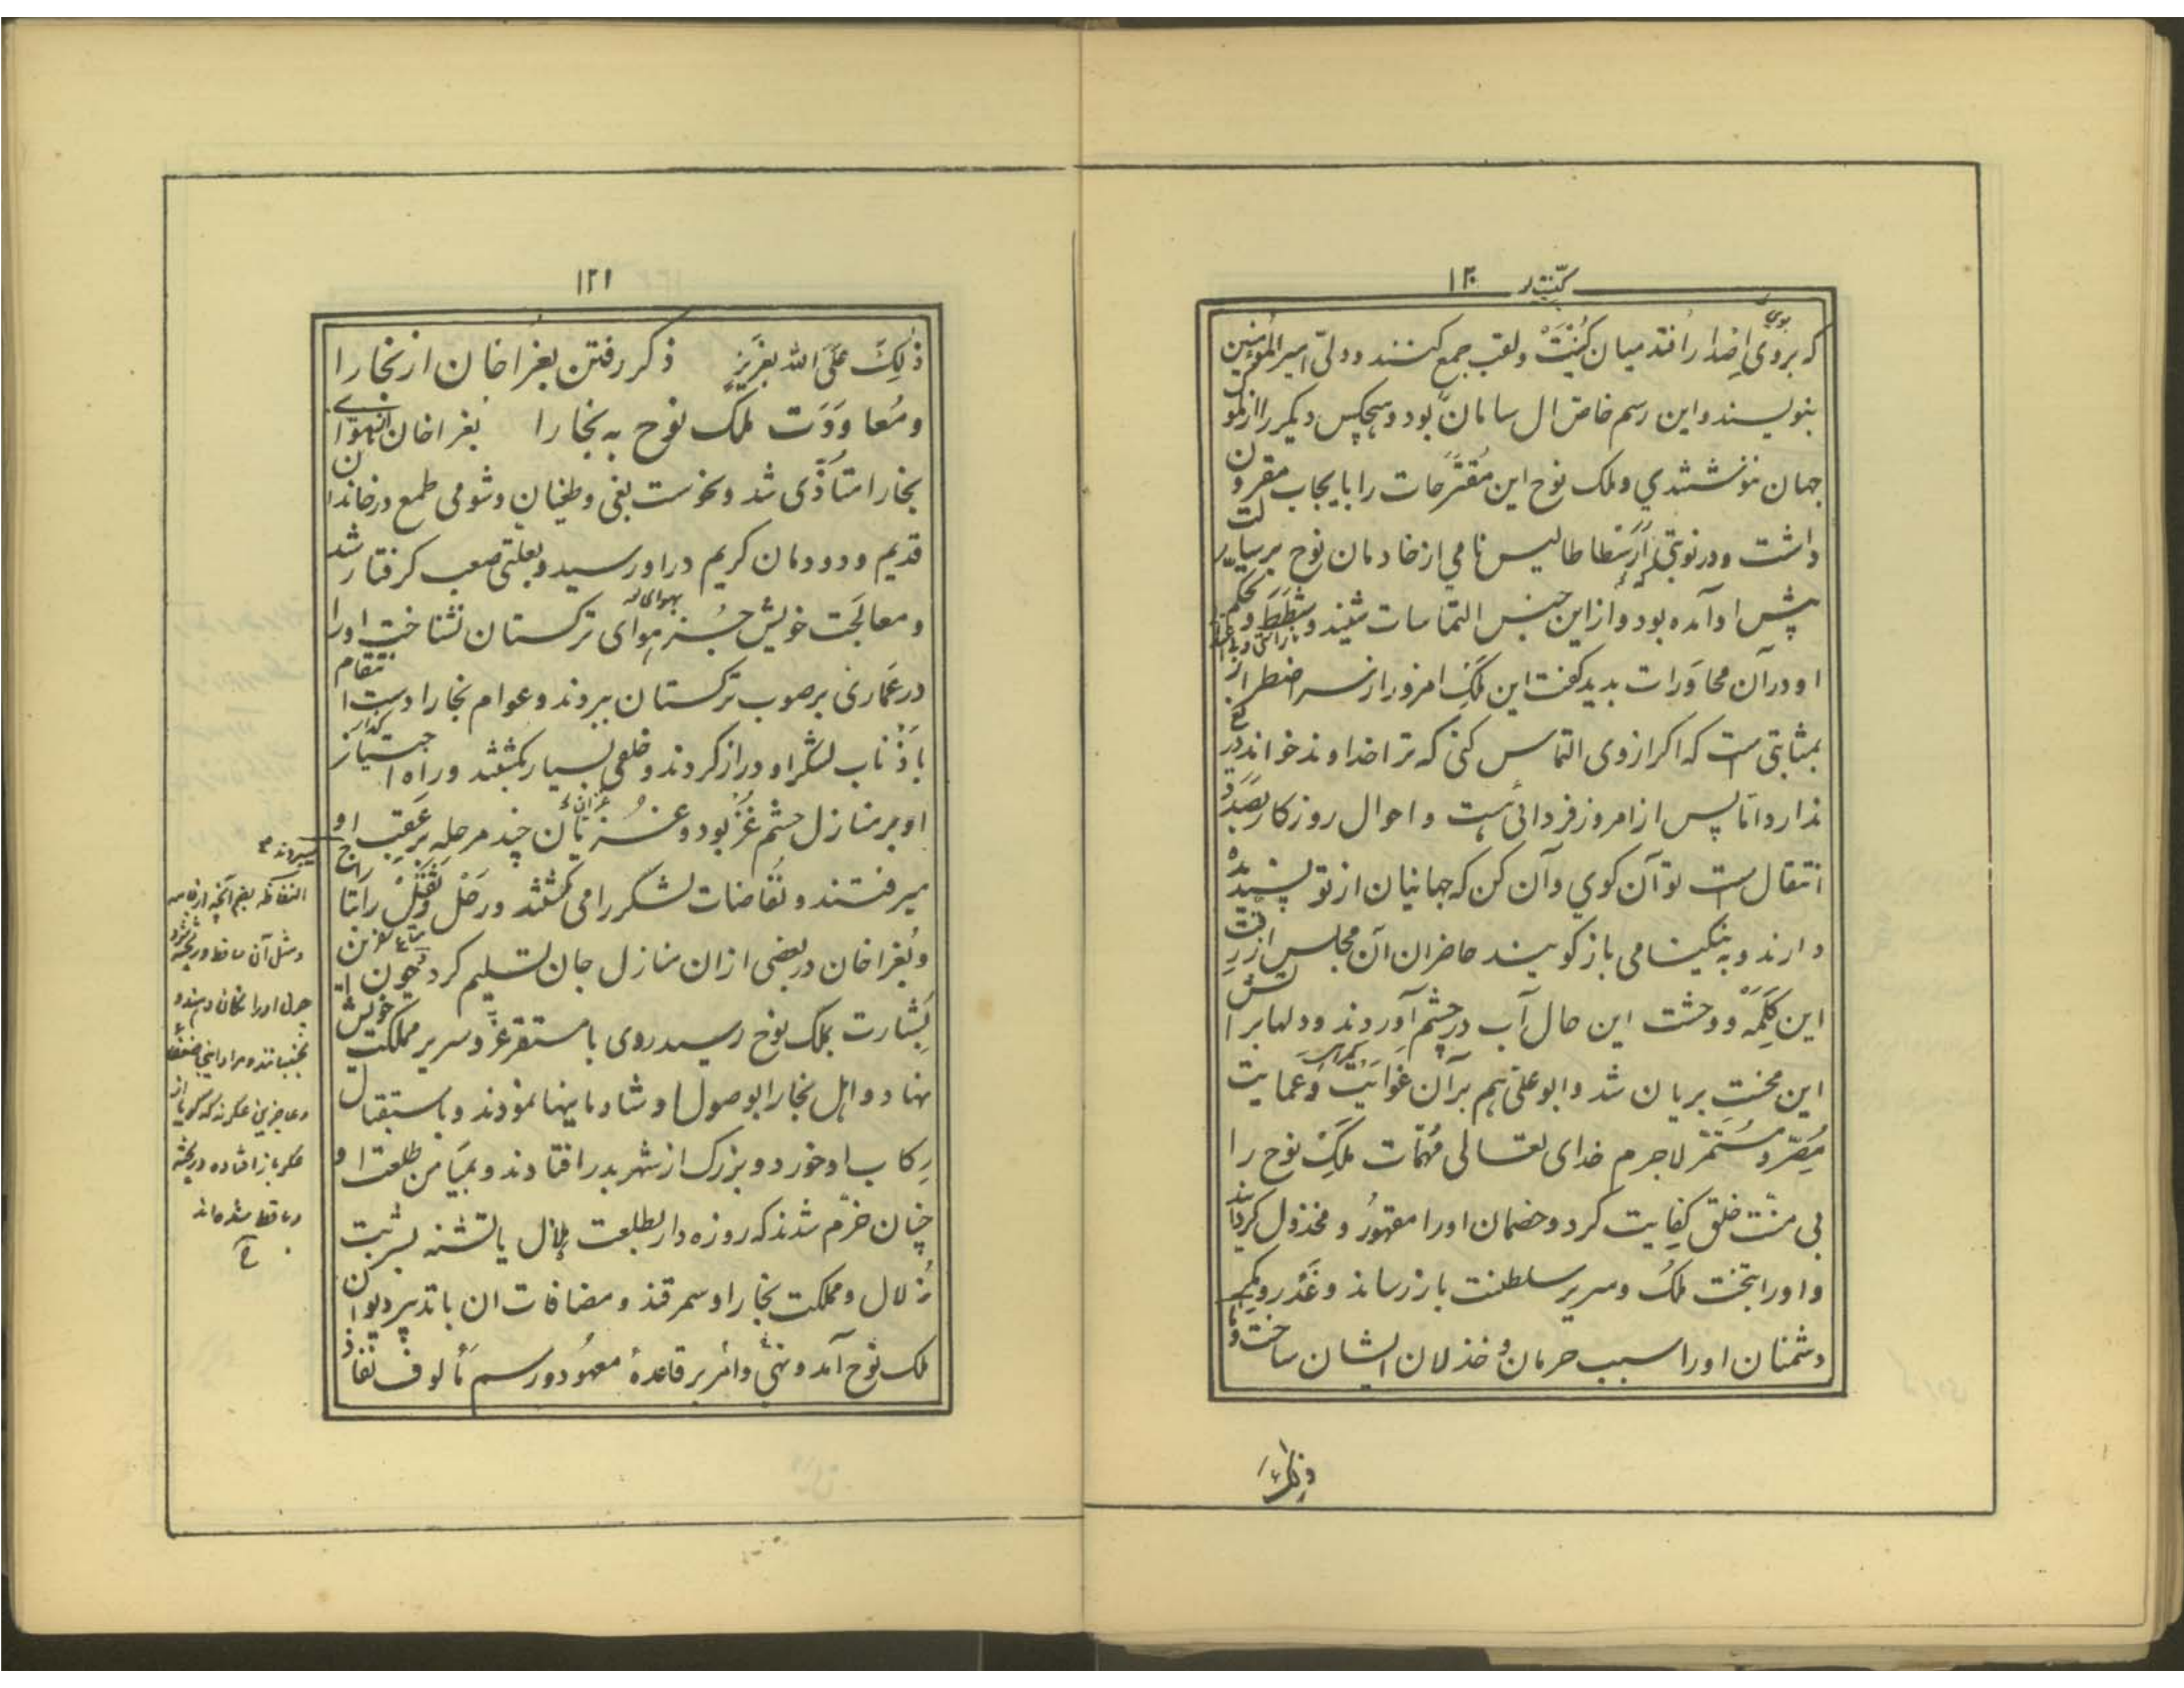 ۱۲۰
که بروی اضداد را فتد میان کُنیَت و لقب جمع کنند و ولیّ امیر المؤمنین
بنویسند و این رسم خاصّ ال سامان بود و هیچکس دیکر را از ملوک
جهان ننوشتندی و ملک نوح این مقترحات را بایجاب مقرون
داشت و در نوبتی ارسطاطالیس نامی از خادمان نوح برسالت
پیش او آمده بود و از این جنس التماسات شنید و شَطَط و تحکم
او در آن محاورات بدید کفت این مَلِک امروز از سر اضطرار
بمثابتی است که اکر از وی التماس کنی که ترا خداوند خواند دریغ
ندارد امّا پس از امروز فردائی هست و احوال روزکار بصدد
انتقال است تو آن کوی و آن کن که جهانیان از تو پسندیده
دارند و به نیکنامی باز کویند حاضران آن مجلس از رقت
این کَلِمَه و وحشت این حال آب در چشم آوردند و دلها بر آتش
این محنت بریان شد و ابو علی هم بر آن غَوایَت و عمایت
مُصِرّ و مستمر لاجرم خدای تعالی مُهمّات مَلِک نوح را
بی منّت خلق کفایت کرد و خصمان او را مقهور و مخذول کردانید
و او را بتخت مُلک و سریر سلطنت باز رساند و غَدر و مکر
دشمنان او را سبب حرمان و خذلان ایشان ساخت و ما
ذلک
۱۲۱
ذلِکَ عَلَی الله بعَزیز ذکر رفتن بغرا خان از بخارا
و مُعاوَدَت ملک نوح به بخارا بغرا خان از هوای
بخارا متأذّی شد و نحوست بغی و طغیان و شومی طمع در خاندان
قدیم و دودمان کریم در او رسید و بعلتی صعب کرفتار شد
و معالجت خویش جز هوای ترکستان نشناخت او را
در عماری بر صوب ترکستان ببردند و عوام بخارا دست انتقام
باذناب لشکر او دراز کردند و خلقی بسیار بکشتند و راه اجتیاز
او بر منازل حشم غُز بود و غزّیان چند مرحله بر عقب او
میرفتند و نُفاضات لشکر را می کشتند و رَحْل و ثِقْل را بتاراج
میبردند
و بُغرا خان در بعضی از ان منازل جان تسلیم کرد چون این
بشارت بملک نوح رسید روی با مستقر عزّ و سریر مملکت خویش
نهاد و اهل بخارا بوصول او شادمانیها نمودند و باستقبال
رکاب او خورد و بزرک از شهر بدر افتادند و بمیامن طلعت او
چنان خرّم شدند که روزه دار بطلعت هلال یا تشنه بشربت
زلال و مملکت بخارا و سمرقند و مضافات ان با تدبیر دیوان
ملک نوح آمد و نهی و امر بر قاعدهٔ معهود و رسم مألوف نفاذ